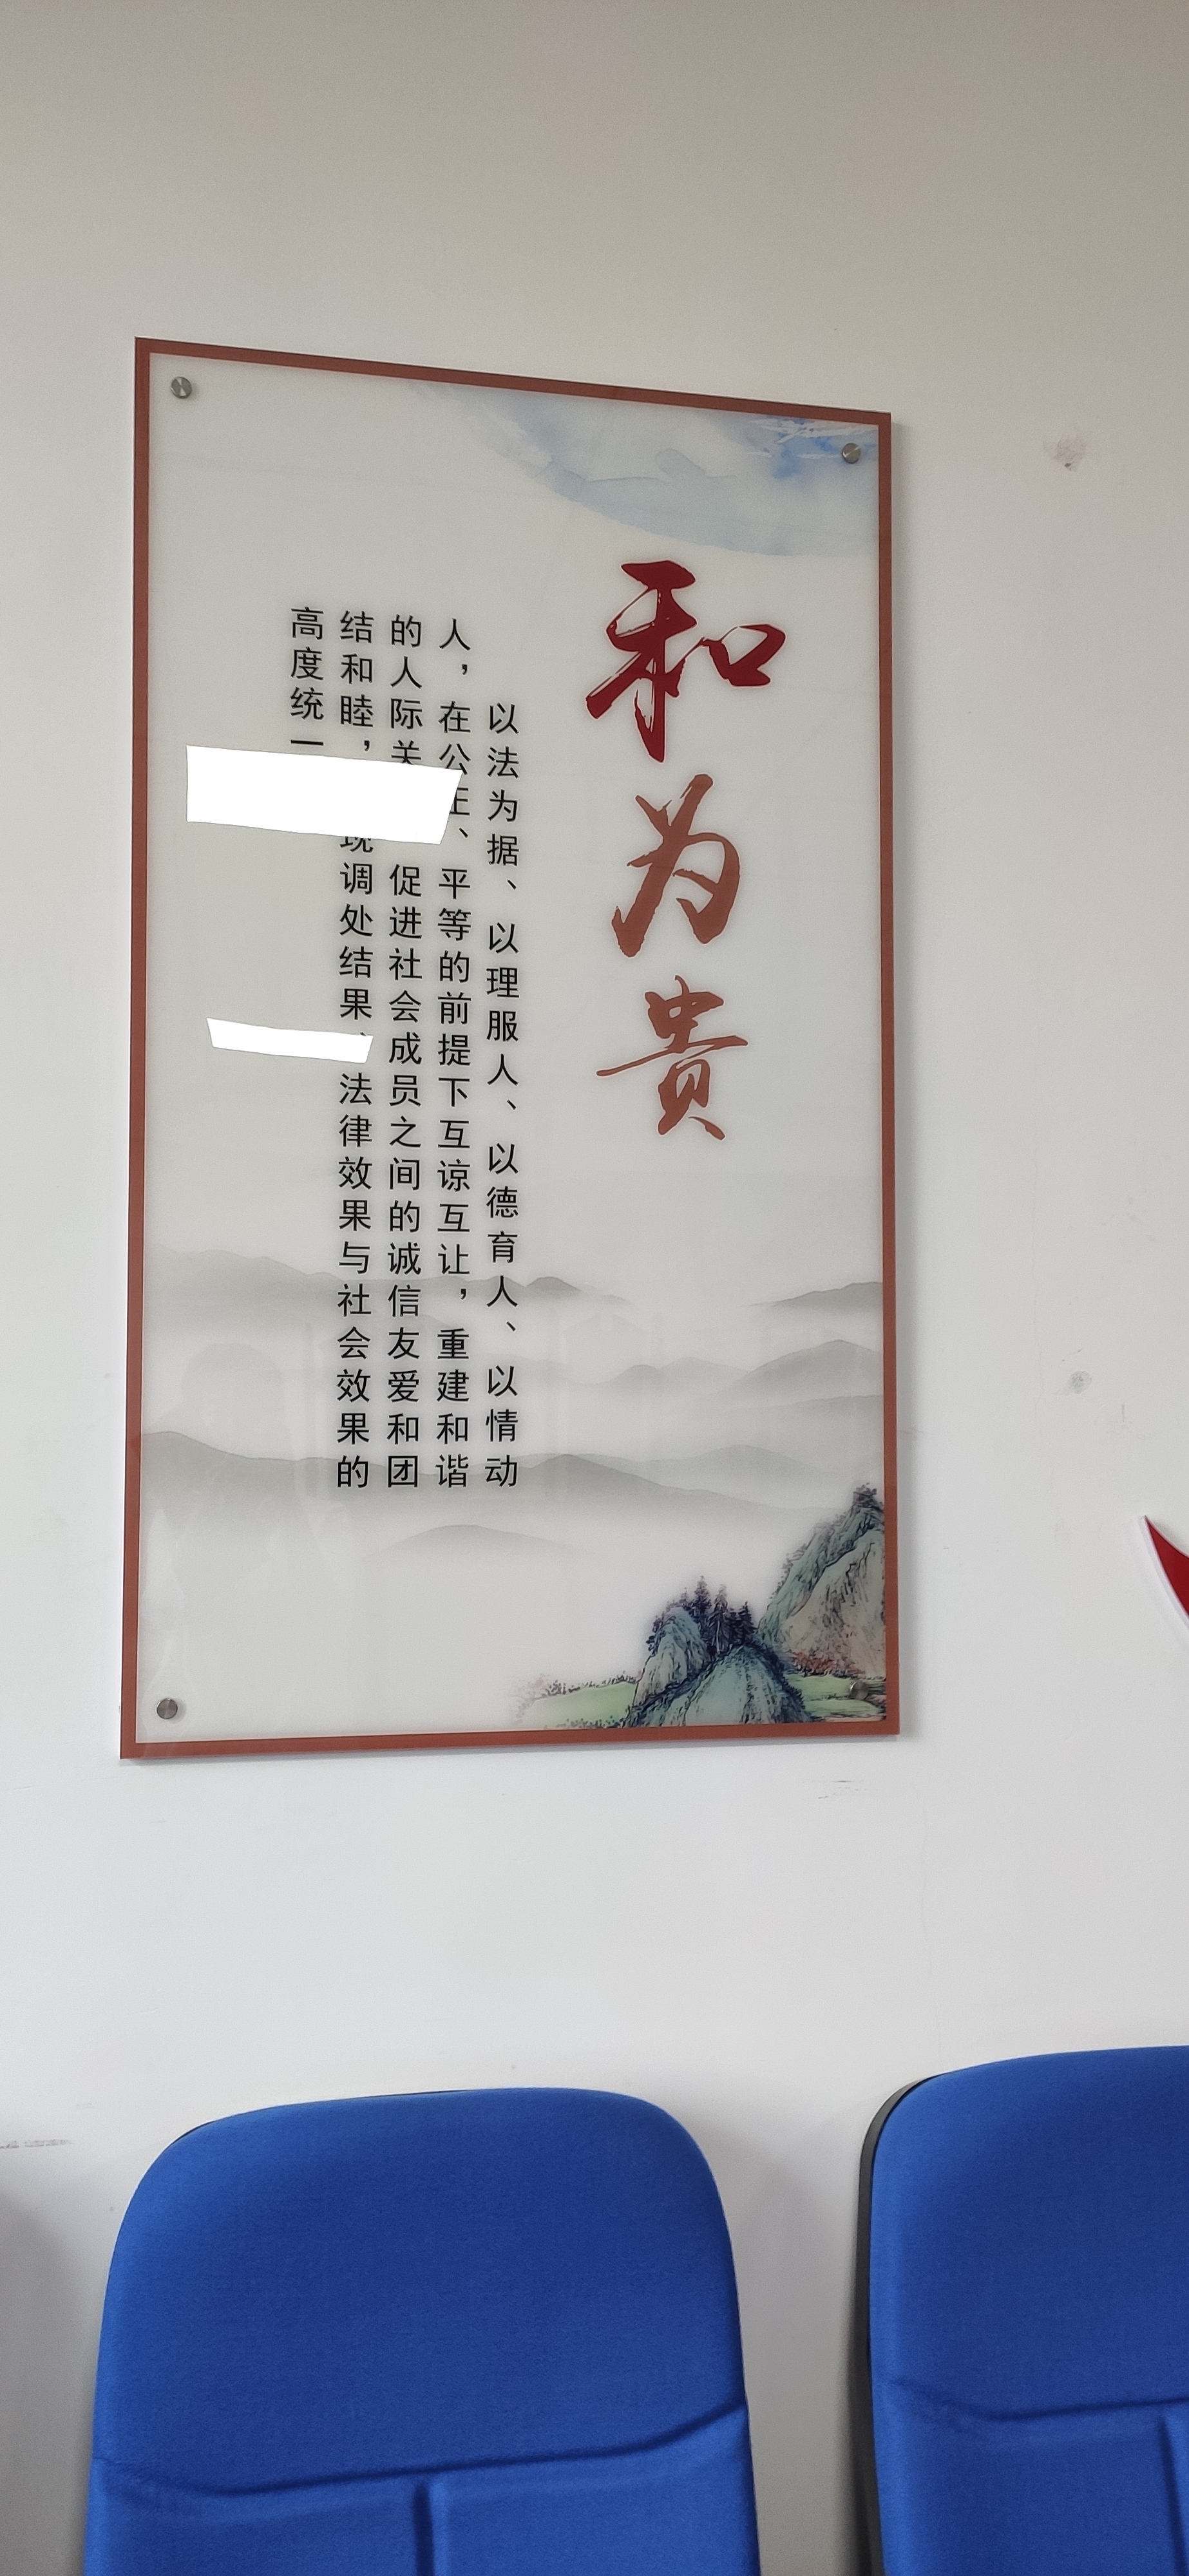 和为贵
以法为据、以理服人、以德育人、以情动
人，在公正、平等的前提下互谅互让，重建和谐
的人际关 促进社会成员之间的诚信友爱和团
结和睦， 现调处结果 法律效果与社会效果的
高度统一